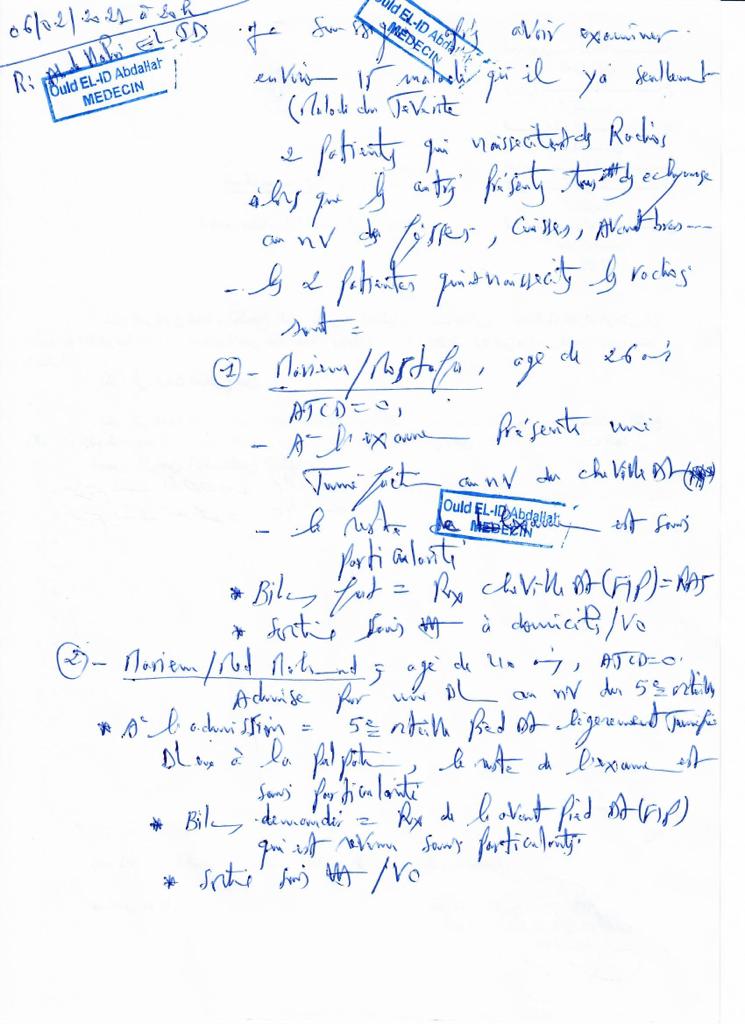 06/02/2021 à 20h
Ould EL-ID Abdallat
MEDECIN
Ould EL-ID Abdallat
MEDECIN
avoir examiner
environ 15 malade qu'il ya seulement
2 patients qui des Rochios
alors que les autres présents des echymose
au nV des fesses, Cuisses, Avant bras---
- les 2 patientes les rochios
sont =
① - Mariem/Mostafa, agé de 26 ans
ATCD=0,
- A l'examen Présente une
au nV du cheville Dt
- le reste de est sans
Ould EL-ID Abdallat
MEDECIN
particularité
* Bilan fait = Rx cheville Dt (F/P) = RAS
* Sortie sous à domicile/VO
② - Mariem/Med, agé de, ATCD=0.
Admise par une DL au nV du 5e orteille
* A l'admission = 5e orteille pied Dt légerement Tuméfié
à la palpation, le reste de l'examen est
sans particularité
* Bilan demander = Rx de l'avant pied Dt (F/P)
qui est revenu sans particularité.
* Sortie sous /VO